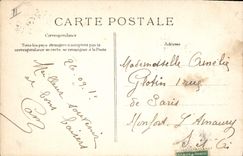 CARTE POSTALE
Correspondance
Adresse
Tous les pays étrangers n'acceptent pas la
correspondance au recto, se renseigner à la Poste
26.09.1
Meilleur souvenir
et bons baisers
Mademoiselle Amélie
1 rue
de Paris
Monfort L'Amaury
S. et O.